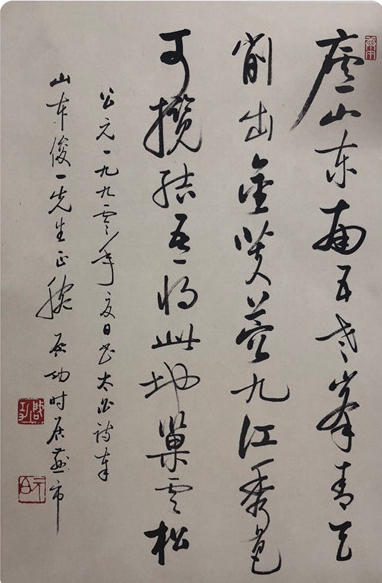 廬山东南五老峯青天
削出金芙蓉九江秀色
可揽结吾将此地巢云松
公元一九九零年夏日书太白诗奉
山本俊一先生正腕 启功时居燕市
启功
元白